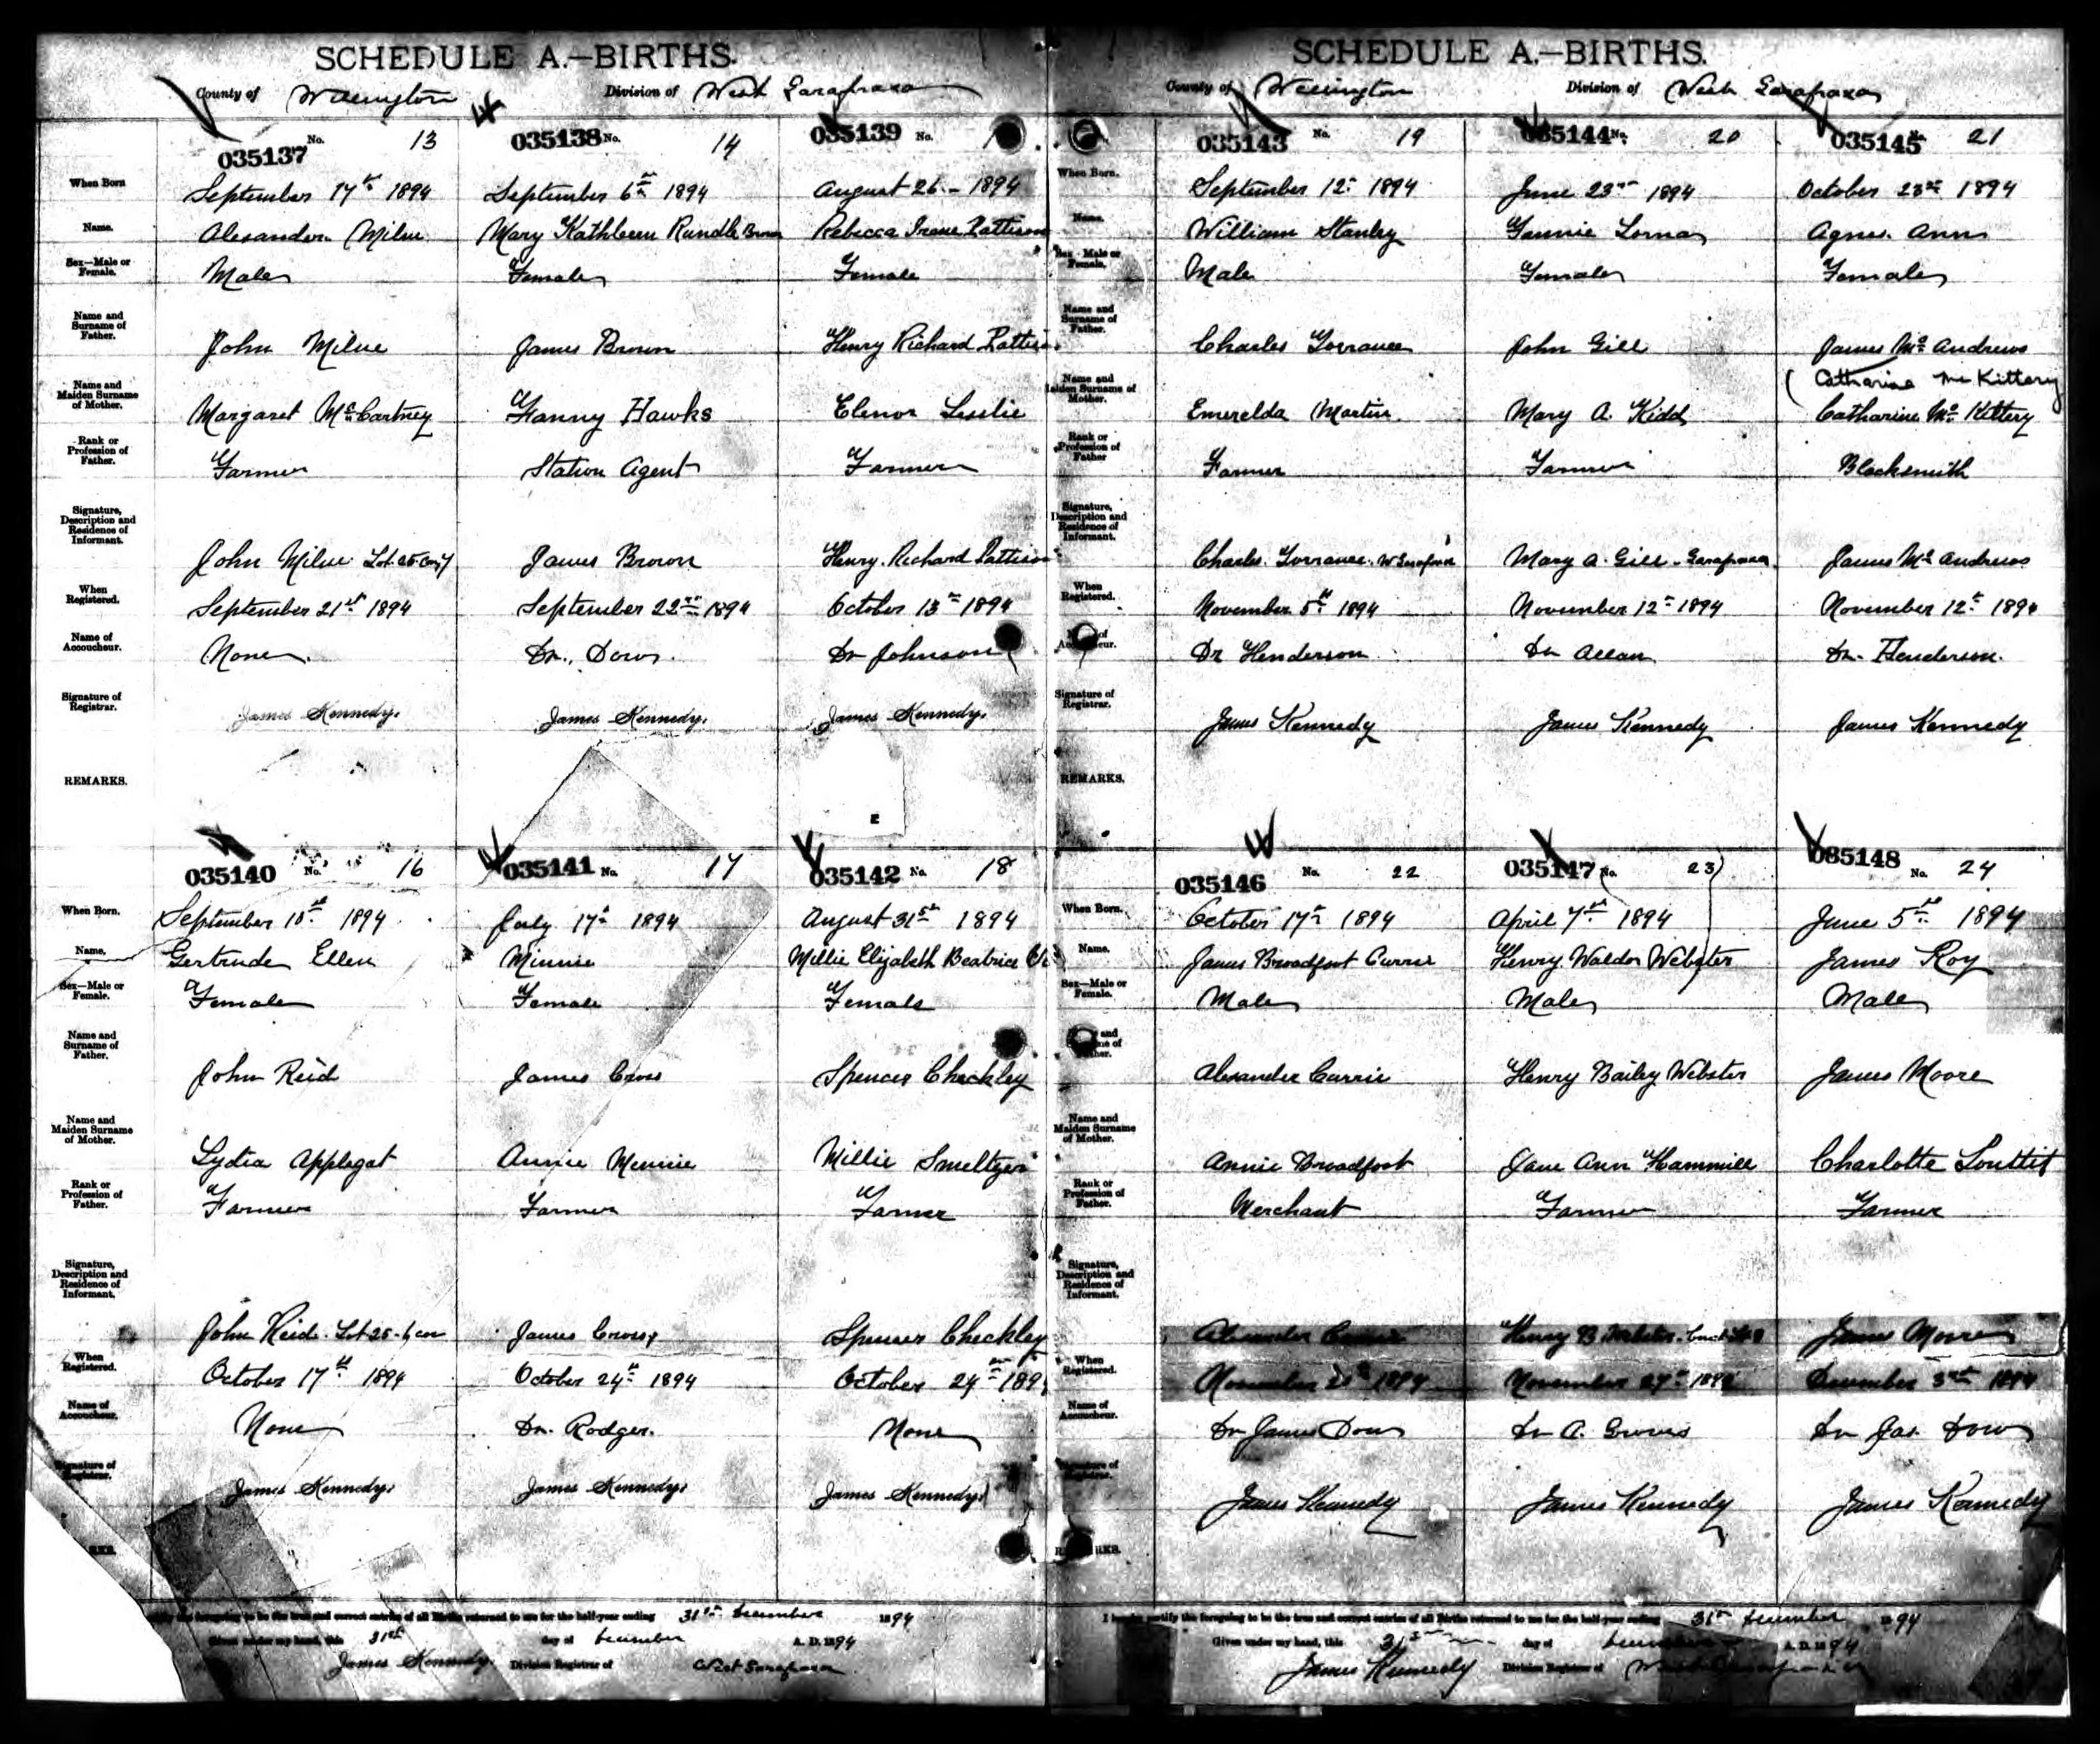 SCHEDULE A.—BIRTHS.
County of Wellington Division of West Garafraxa
035137 No. 13 035138 No. 14 035139 No. 1
When Born September 17th 1894 September 6th 1894 August 26 - 1894
Name. Alexander Milne Mary Kathleen Rundle Brown Rebecca Irene Pattison
Sex—Male or Female. Male Female Female
Name and Surname of Father. John Milne James Brown Henry Richard Pattison
Name and Maiden Surname of Mother. Margaret McCartney Fanny Hawks Elenor Lesslie
Rank or Profession of Father. Farmer Station Agent Farmer
Signature, Description and Residence of Informant. John Milne Lot 25 Con 7 James Brown Henry Richard Pattison
When Registered. September 21st 1894 September 22nd 1894 October 13th 1894
Name of Accoucheur. None Dr. Dow Dr Johnson
Signature of Registrar. James Kennedy. James Kennedy. James Kennedy.
REMARKS.
035140 No. 16 035141 No. 17 035142 No. 18
When Born. September 10th 1894 July 17th 1894 August 31st 1894
Name. Gertrude Ellen Minnie Millie Elizabeth Beatrice
Sex—Male or Female. Female Female Female
Name and Surname of Father. John Reid James Cross Spencer Checkley
Name and Maiden Surname of Mother. Lydia Applegat Annie Mennie Millie Smeltzer
Rank or Profession of Father. Farmer Farmer Farmer
Signature, Description and Residence of Informant. John Reid. Lot 25 - 4 con James Cross Spencer Checkley
When Registered. October 17th 1894 October 24th 1894 October 24th 189
Name of Accoucheur. None Dr. Rodger. None
Signature of Registrar. James Kennedy. James Kennedy. James Kennedy.
the foregoing to be the true and correct entries of all Births returned to me for the half-year ending 31st December 1894
Given under my hand, this 31st day of December A. D. 1894
James Kennedy Division Registrar of West Garafraxa
SCHEDULE A.—BIRTHS.
County of Wellington Division of West Garafraxa
035143 No. 19 035144 No. 20 035145 No. 21
When Born. September 12th 1894 June 23rd 1894 October 23rd 1894
Name. William Stanley Fannie Lorna Agnes Ann
Sex—Male or Female. Male Female Female
Name and Surname of Father. Charles Torrance John Gill James McAndrews
Catharine McKittery
Name and Maiden Surname of Mother. Emerelda Martin Mary A. Kidd Catharine McKittery
Rank or Profession of Father Farmer Farmer Blacksmith
Signature, Description and Residence of Informant. Charles Torrance. W Garafraxa Mary A. Gill - Garafraxa James McAndrews
When Registered. November 5th 1894 November 12th 1894 November 12th 1894
Dr Henderson Dr Allan Dr. Henderson.
Signature of Registrar. James Kennedy James Kennedy James Kennedy
REMARKS.
035146 No. 22 035147 No. 23 035148 No. 24
When Born. October 17th 1894 April 7th 1894 June 5th 1894
Name. James Broadfoot Currie Henry Waldor Webster James Roy
Sex—Male or Female. Male Male Male
Alexander Currie Henry Bailey Webster James Moore
Name and Maiden Surname of Mother. Annie Broadfoot Jane Ann Hammill Charlotte Louttit
Rank or Profession of Father. Merchant Farmer Farmer
Signature, Description and Residence of Informant. Alexander Currie Henry B Webster James Moore
When Registered. November 1894 November 27th 189 December 3rd 1894
Name of Accoucheur. Dr James Dow Dr A. Groves Dr Jas. Dow
Signature of Registrar. James Kennedy James Kennedy James Kennedy
I hereby certify the foregoing to be the true and correct entries of all Births returned to me for the half-year ending 31st December 1894
Given under my hand, this 31st day of December A. D. 1894
James Kennedy Division Registrar of West Garafraxa